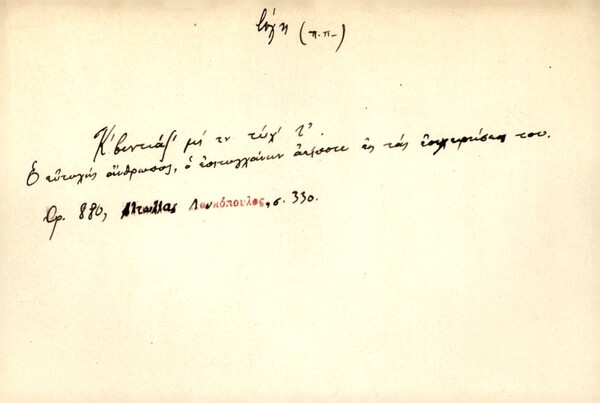 τύχη (π.π.)
Κ'βεντιάζ' μέ τν τύχ' τ'.
Ὁ εὐτυχής ἄνθρωπος, ὁ ἐπιτυγχάνων ἀείποτε εἰς τάς ἐπιχειρήσεις του.
Ἀρ. 880, Αἰτωλίας Λουκόπουλος, σ. 330.